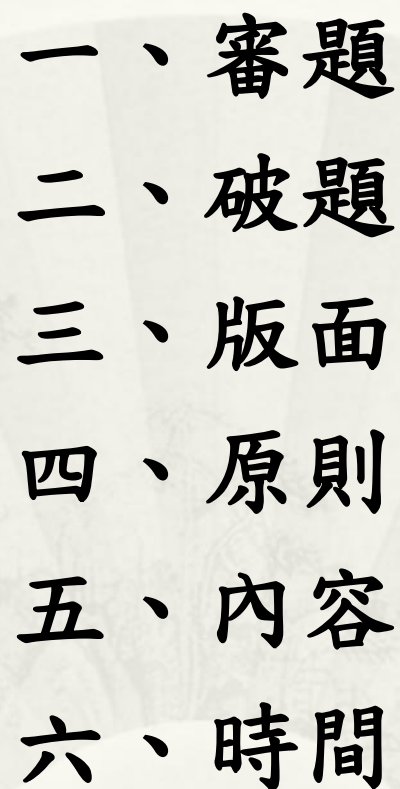 一、審題
二、破題
三、版面
四、原則
五、內容
六、時間